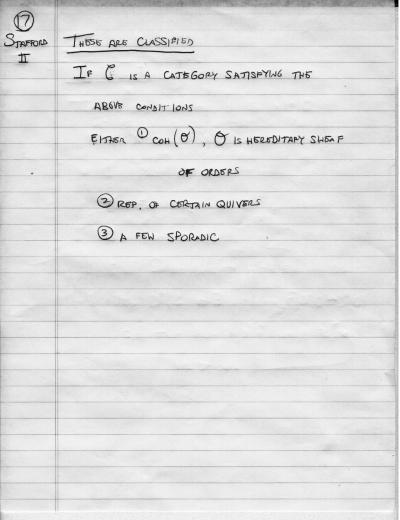 17
STAFFORD
II
THESE ARE CLASSIFIED
IF C IS A CATEGORY SATISFYING THE
ABOVE CONDITIONS
EITHER ① COH(O), O IS HEREDITARY SHEAF
OF ORDERS
② REP. OF CERTAIN QUIVERS
③ A FEW SPORADIC